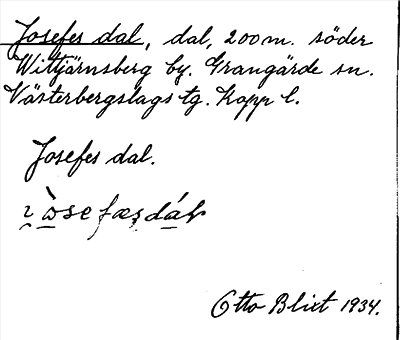 Josefes dal, dal, 200 m. söder
Wittjärnsberg by. Grangärde sn.
Västerbergslags tg. Kopp l.
Josefes dal.
Otto Blixt 1934.